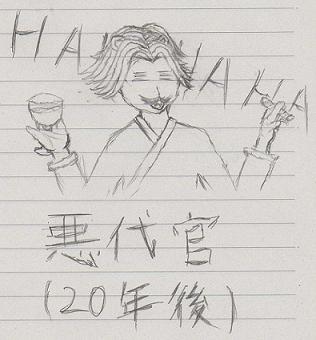 HAHAHAHA
悪代官
(20年後)